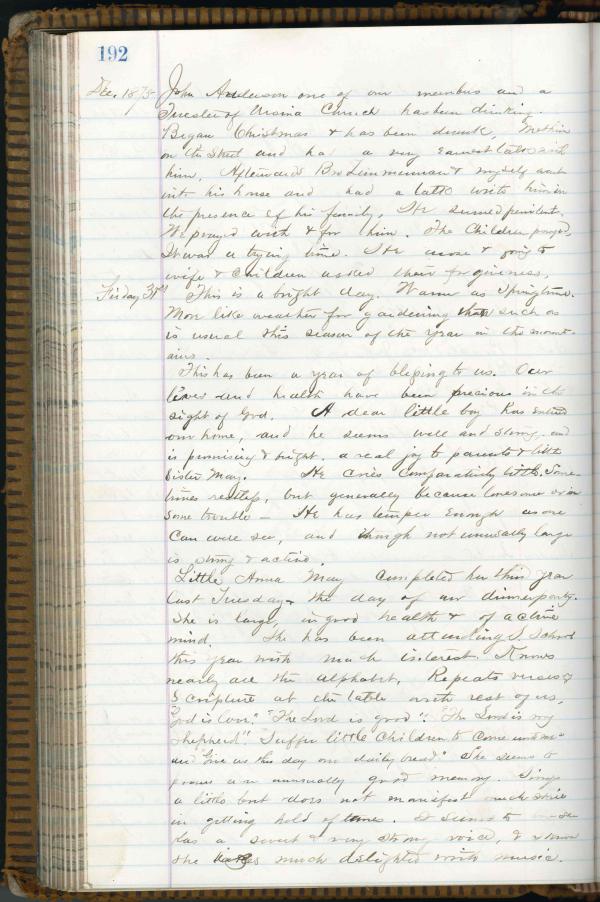 192
Dec. 1875 John Anderson one of our members and a
Trustee of Ursina Church has been drinking.
Began Christmas & has been drunk,
on the street and had a very earnest talk with
him. Afterwards Bro Zimmerman & myself went
into his house and had a talk with him in
the presence of his family. He seemed penitent.
We prayed with & for him. The Children prayed.
It was a trying time. He arose & going to
wife & children asked their forgiveness.
Friday 31st This is a bright day. Warm as Springtime.
More like weather for gardening than such as
is usual this season of the year in the mount-
ains.
This has been a year of blessing to us. Our
lives and health have been precious in the
sight of God. A dear little boy has entered
our home, and he seems well and strong, and
is promising & bright. a real joy to parents & little
Sister May. He cries comparatively little. Some-
times restless, but generally because lonesome or in
some trouble — He has temper enough as one
can well see, and though not unusually large
is strong & active.
Little Anna May completed her third year
last Tuesday, the day of our dinner party.
She is large, in good health & of active
mind. She has been attending S. School
this year with much interest. Knows
nearly all the alphabet. Repeats verses of
Scripture at the table with rest of us,
"God is love." "The Lord is good". "The Lord is my
shepherd". Suffer little children to come unto me"
and "Give us this day our daily bread." She seems to
possess an unusually good memory. Sings
a little but does not manifest much skill
in getting hold of tunes. It seems to me she
has a sweet & very strong voice, &
she is much delighted with music.